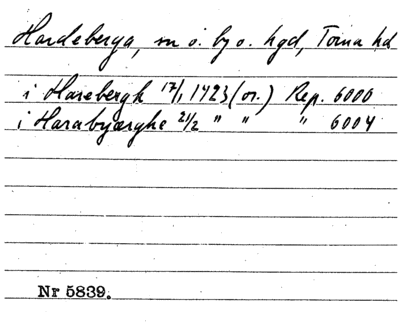 Hardeberga, sn o. by o. hgd, Torna hd
i Harebergh 17/1 1423 (or.) Rep. 6000
i Harabyærghe 21/2 " " " 6004
Nr 5839.